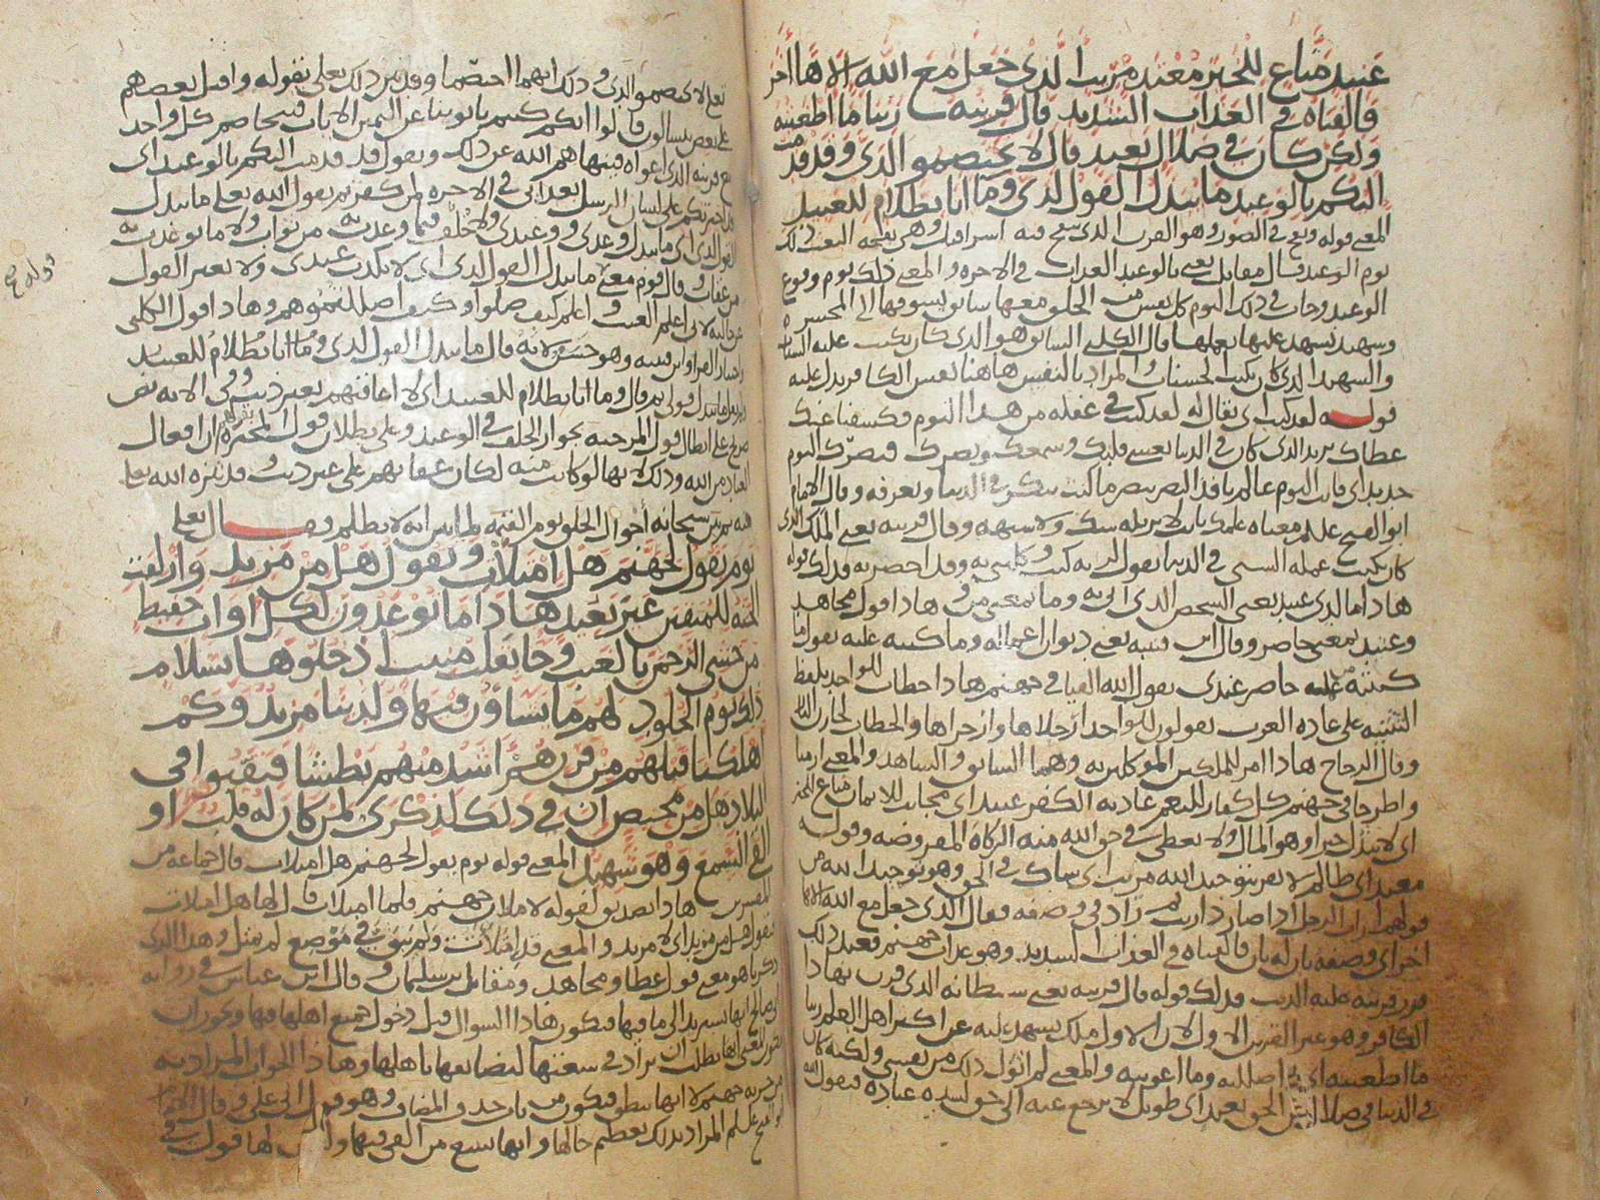 عنيد مناع للخير معتد مريب الذي جعل مع الله الاها اخر
فالقياه في العذاب الشديد قال قرينه ربنا ما اطغيته
ولكن كان في ضلال بعيد قال لا تختصموا لدي وقد قدمت
اليكم بالوعيد ما يبدل القول لدي وما انا بظلام للعبيد
المعنى قوله ونفخ في الصور وهو القرن الذي ينفخ فيه اسرافيل وهي نفخه البعث ذلك
يوم الوعيد قال مقاتل يعني بالوعيد العذاب في الاخره والمعنى ذلك يوم وقوع
الوعيد وجات في ذلك اليوم كل نفس من الخلق معها سائق يسوقها الى المحشر
وشهيد يشهد عليها بعملها قال الكلبي السائق هو الذي كان يكتب عليه السيئات
والشهيد الذي كان يكتب الحسنات والمراد بالنفس هاهنا نفس الكافر يدل عليه
قوله لقد كنت اي يقال له لقد كنت في غفله من هذا اليوم فكشفنا عنك
غطاك يريد الذي كان في الدنيا يغشى قلبك وسمعك وبصرك فبصرك اليوم
حديد اي فانت اليوم عالم نافذ البصر تبصر ما كنت تنكر في الدنيا وتعرفه وقال الامام
ابو الفتح علمه معناه علمك ثابت لا يزيله شك ولا شبهه وقال قرينه يعني الملك الذي
كان يكتب عمله السيئ في الدنيا يقول لربه كنت وكلتني به وقد احضرته فذلك قوله
هاذا ما لدي عتيد يعني الشخص الذي اتى به وما بمعنى من وهاذا قول مجاهد
وعتيد بمعنى حاضر وقال ابن قتيبه يعني ديوان اعماله وما كتبه عليه يقول ما
كتبته عليه حاضر عندي يقول الله القيا في جهنم هاذا خطاب للواحد بلفظ
التثنيه على عاده العرب يقولون للواحد ارحلاها وازجراها والخطاب لخازن النار
وقال الزجاج هاذا امر للملكين الموكلين به وهما السائق والشاهد والمعنى ارميا
واطرحا في جهنم كل كفار للنعم عاديه الكفر عنيد اي مجانب للايمان مناع للخير
اي لا يبذل خيرا وهو المال ولا يعطي في حق الله منه الزكاه المفروضه وقوله
معتد اي ظالم لا يقر بتوحيد الله مريب اي شاك في الحق وهو توحيد الله من
قولهم اراب الرجل اذا صار ذا ريب ثم زاد في وصفه فقال الذي جعل مع الله الاها
اخر اي وصفه بان له ثان فالقياه في العذاب الشديد وهو عذاب جهنم فعند ذلك
قوله قال قرينه يعني شيطانه الذي قرن بهاذا
الكافر وهو غير القرين الاول لان الاول ملك يشهد عليه عن اكثر اهل العلم ربنا
ما اطغيته اي ما اضللته وما اغويته والمعنى لم اتول ذلك من نفسي ولكنه كان
في الدنيا في ضلال عن الحق بعيد اي طويل لا يرجع عنه الى حق لشده عناده فيقول الله
تعالى لا تختصموا لدي وذلك انهما اختصما وقد بين ذلك تعالى بقوله واقبل بعضهم
على بعض يتسالون قالوا انكم كنتم تاتوننا عن اليمين الايات فيخاصم كل واحد
مع قرينه الذي اغواه فينهاهم الله عن ذلك ويقول قد قدمت اليكم بالوعيد اي
قد اخبرتكم على لسان الرسل بعذابي في الاخره لمن كفر ثم يقول الله تعالى ما يبدل
القول لدي اي ما يبدل وعدي ووعيدي ولا خلف فيما وعدت به من ثواب ولا ما توعدت به
من عقاب وقال قوم معنى ما يبدل القول لدي اي لا يكذب عندي ولا يغير القول
عن حاله لاني اعلم الغيب واعلم كيف ضلوا وكيف اضللتموهم وهاذا قول الكلبي
واختيار الفراء وابن قتيبه وهو حسن لانه قال ما يبدل القول لدي وما انا بظلام للعبيد
ولم يقل ما يبدل قولي ثم قال وما انا بظلام للعبيد اي لا اعاقبهم بغير ذنب وفي الايه نص
صريح على ابطال قول المرجئه بجواز الخلف في الوعيد وعلى بطلان قول المجبره ان افعال
العباد من الله وذلك انها لو كانت منه لكان عقابهم على غير ذنب وقد تنزه الله تعالى
عنه ثم بين سبحانه احوال الخلق يوم القيمه لما بين انه لا يظلم فقال تعالى
يوم نقول لجهنم هل امتلات وتقول هل من مزيد وازلفت
الجنه للمتقين غير بعيد هاذا ما توعدون لكل اواب حفيظ
من خشي الرحمن بالغيب وجا بقلب منيب ادخلوها بسلام
ذلك يوم الخلود لهم ما يشاون فيها ولدينا مزيد وكم
اهلكنا قبلهم من قرن هم اشد منهم بطشا فنقبوا في
البلاد هل من محيص ان في ذلك لذكرى لمن كان له قلب او
القى السمع وهو شهيد المعنى قوله يوم يقول لجهنم هل امتلات قال جماعه من
المفسرين هاذا تصديق لقوله لاملان جهنم فلما امتلات قال لها هل امتلات
فتقول هل من مزيد اي لا مزيد والمعنى قد امتلات ولم يبق في موضع لم يمتل وهذا الذي
ذكرنا هو معنى قول عطا ومجاهد ومقاتل بن سليمان وقال ابن عباس في روايه
ابي صالح انها تستزيد الى ما فيها فيكون هاذا السوال قبل دخول جميع اهلها فيها ويكون ان
يكون المعنى انها تطلب ان يزاد في سعتها لتضايقها باهلها وهاذا الجواب المراد به
من خزنه جهنم لا انها تنطق فيكون من باب حذف المضاف وهو قول ابي علي وقال
ابو الفتح علم المراد بذلك تعظيم حالها وانها تتسع من القي فيها قول